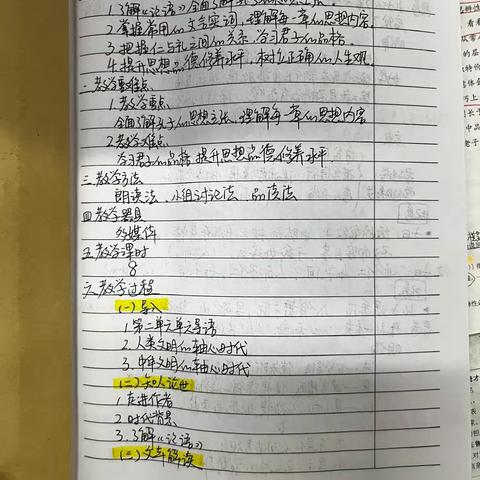 1.了解《论语》
2.掌握常用的文言实词,理解每一章的思想内容
3.把握仁与礼之间的关系,学习君子的品格
4.提升思想品德修养水平,树立正确的人生观.
二.教学重难点
1.教学重点
全面了解孔子的思想主张,理解每一章的思想内容
2.教学难点
学习君子的品格,提升思想品德修养水平.
三.教学方法
朗读法、小组讨论法、品读法
四.教学器具
多媒体
五.教学课时
8
六.教学过程
(一)导入
1.第二单元单元导语
2.人类文明的轴心时代
3.中华文明的轴心时代
(二)知人论世
1.走进作者
2.时代背景
3.了解《论语》
(三)文本解读